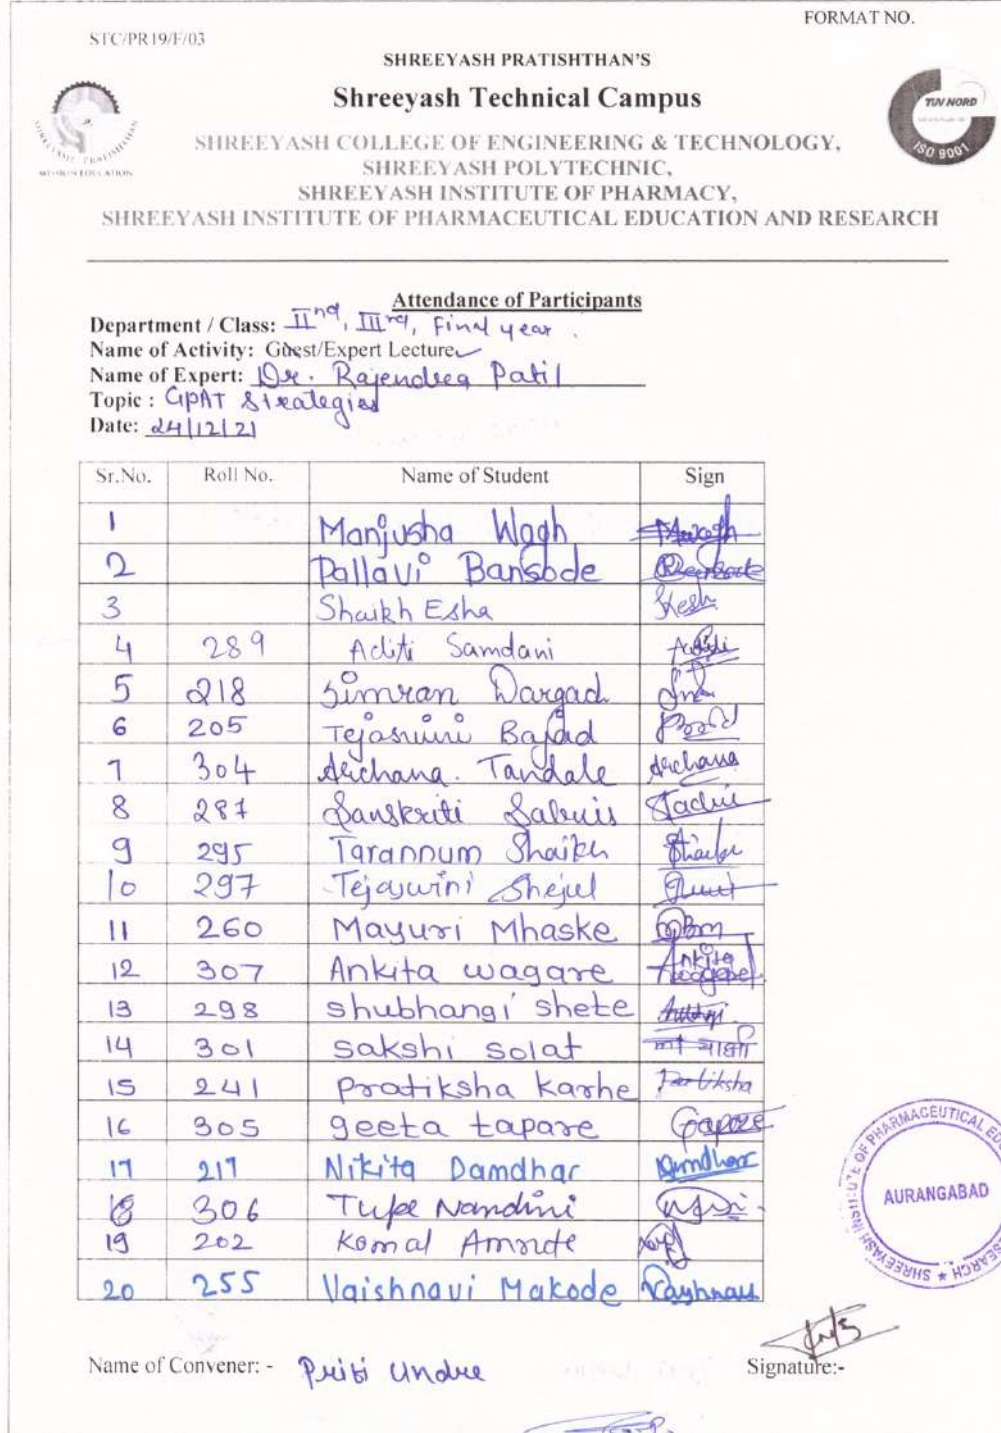 FORMAT NO.
STC/PR19/F/03
SHREEYASH PRATISHTHAN'S
Shreeyash Technical Campus
SHREEYASH COLLEGE OF ENGINEERING & TECHNOLOGY,
SHREEYASH POLYTECHNIC,
SHREEYASH INSTITUTE OF PHARMACY,
SHREEYASH INSTITUTE OF PHARMACEUTICAL EDUCATION AND RESEARCH
SHREEYASH PRATISHTHAN
MISSION EDUCATION
TUV NORD
ISO 9001
Attendance of Participants
Department / Class: IInd, IIIrd, Final year.
Name of Activity: Guest/Expert Lecture
Name of Expert: Dr. Rajendra Patil
Topic : GPAT Strategies
Date: 24/12/21
Sr.No. Roll No. Name of Student Sign
1 Manjusha Wagh
2 Pallavi Bansode
3 Shaikh Esha
4 289 Aditi Samdani Aditi
5 218 Simran Dargad
6 205 Tejaswini
7 304 Archana. Tandale Archana
8 287 Sanskriti Sabnis
9 295 Tarannum Shaikh
10 297 Tejaswini Shejul
11 260 Mayuri Mhaske
12 307 Ankita wagare Ankita
13 298 shubhangi shete
14 301 sakshi solat
15 241 pratiksha karhe Pratiksha
16 305 geeta tapare
17 217 Nikita Damdhar Damdhar
18 306 Tupe Nandini
19 202 Komal
20 255 Vaishnavi Makode Vaishnavi
AURANGABAD
Name of Convener: - Priti Undre
Signature:-